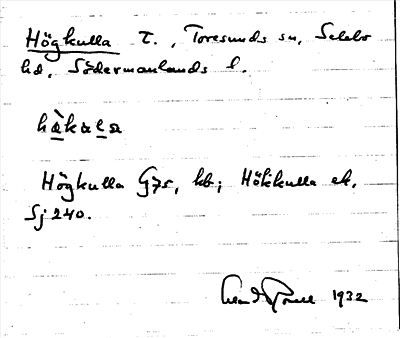 Högkulla T., Toresunds sn, Selebo
hd, Södermanlands l.
hὰkαlα
Högkulla G75, kb; Hökkulla ek,
Sj 240.
1932